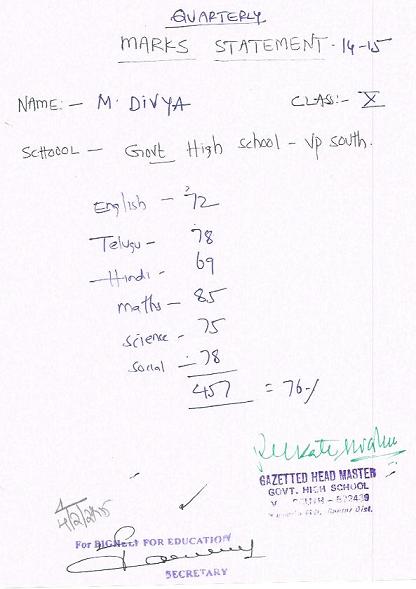 QUARTERLY
MARKS STATEMENT. 14-15
NAME:- M. DIVYA CLASS:- X
SCHOOOL - Govt High school - Vp south.
English - 72
Telugu - 78
Hindi - 69
maths - 85
science - 75
social - 78
457 = 76-/
GAZETTED HEAD MASTER
GOVT. HIGH SCHOOL
Dist.
4/2/2015
For FOR EDUCATION
SECRETARY